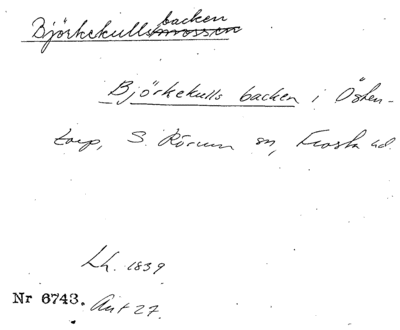 Björkekullsbacken
Björkekulls backen i Östen-
torp, S. Rörum sn, Frosta hd.
Lh. 1839
Nr 6743. Ant 27.